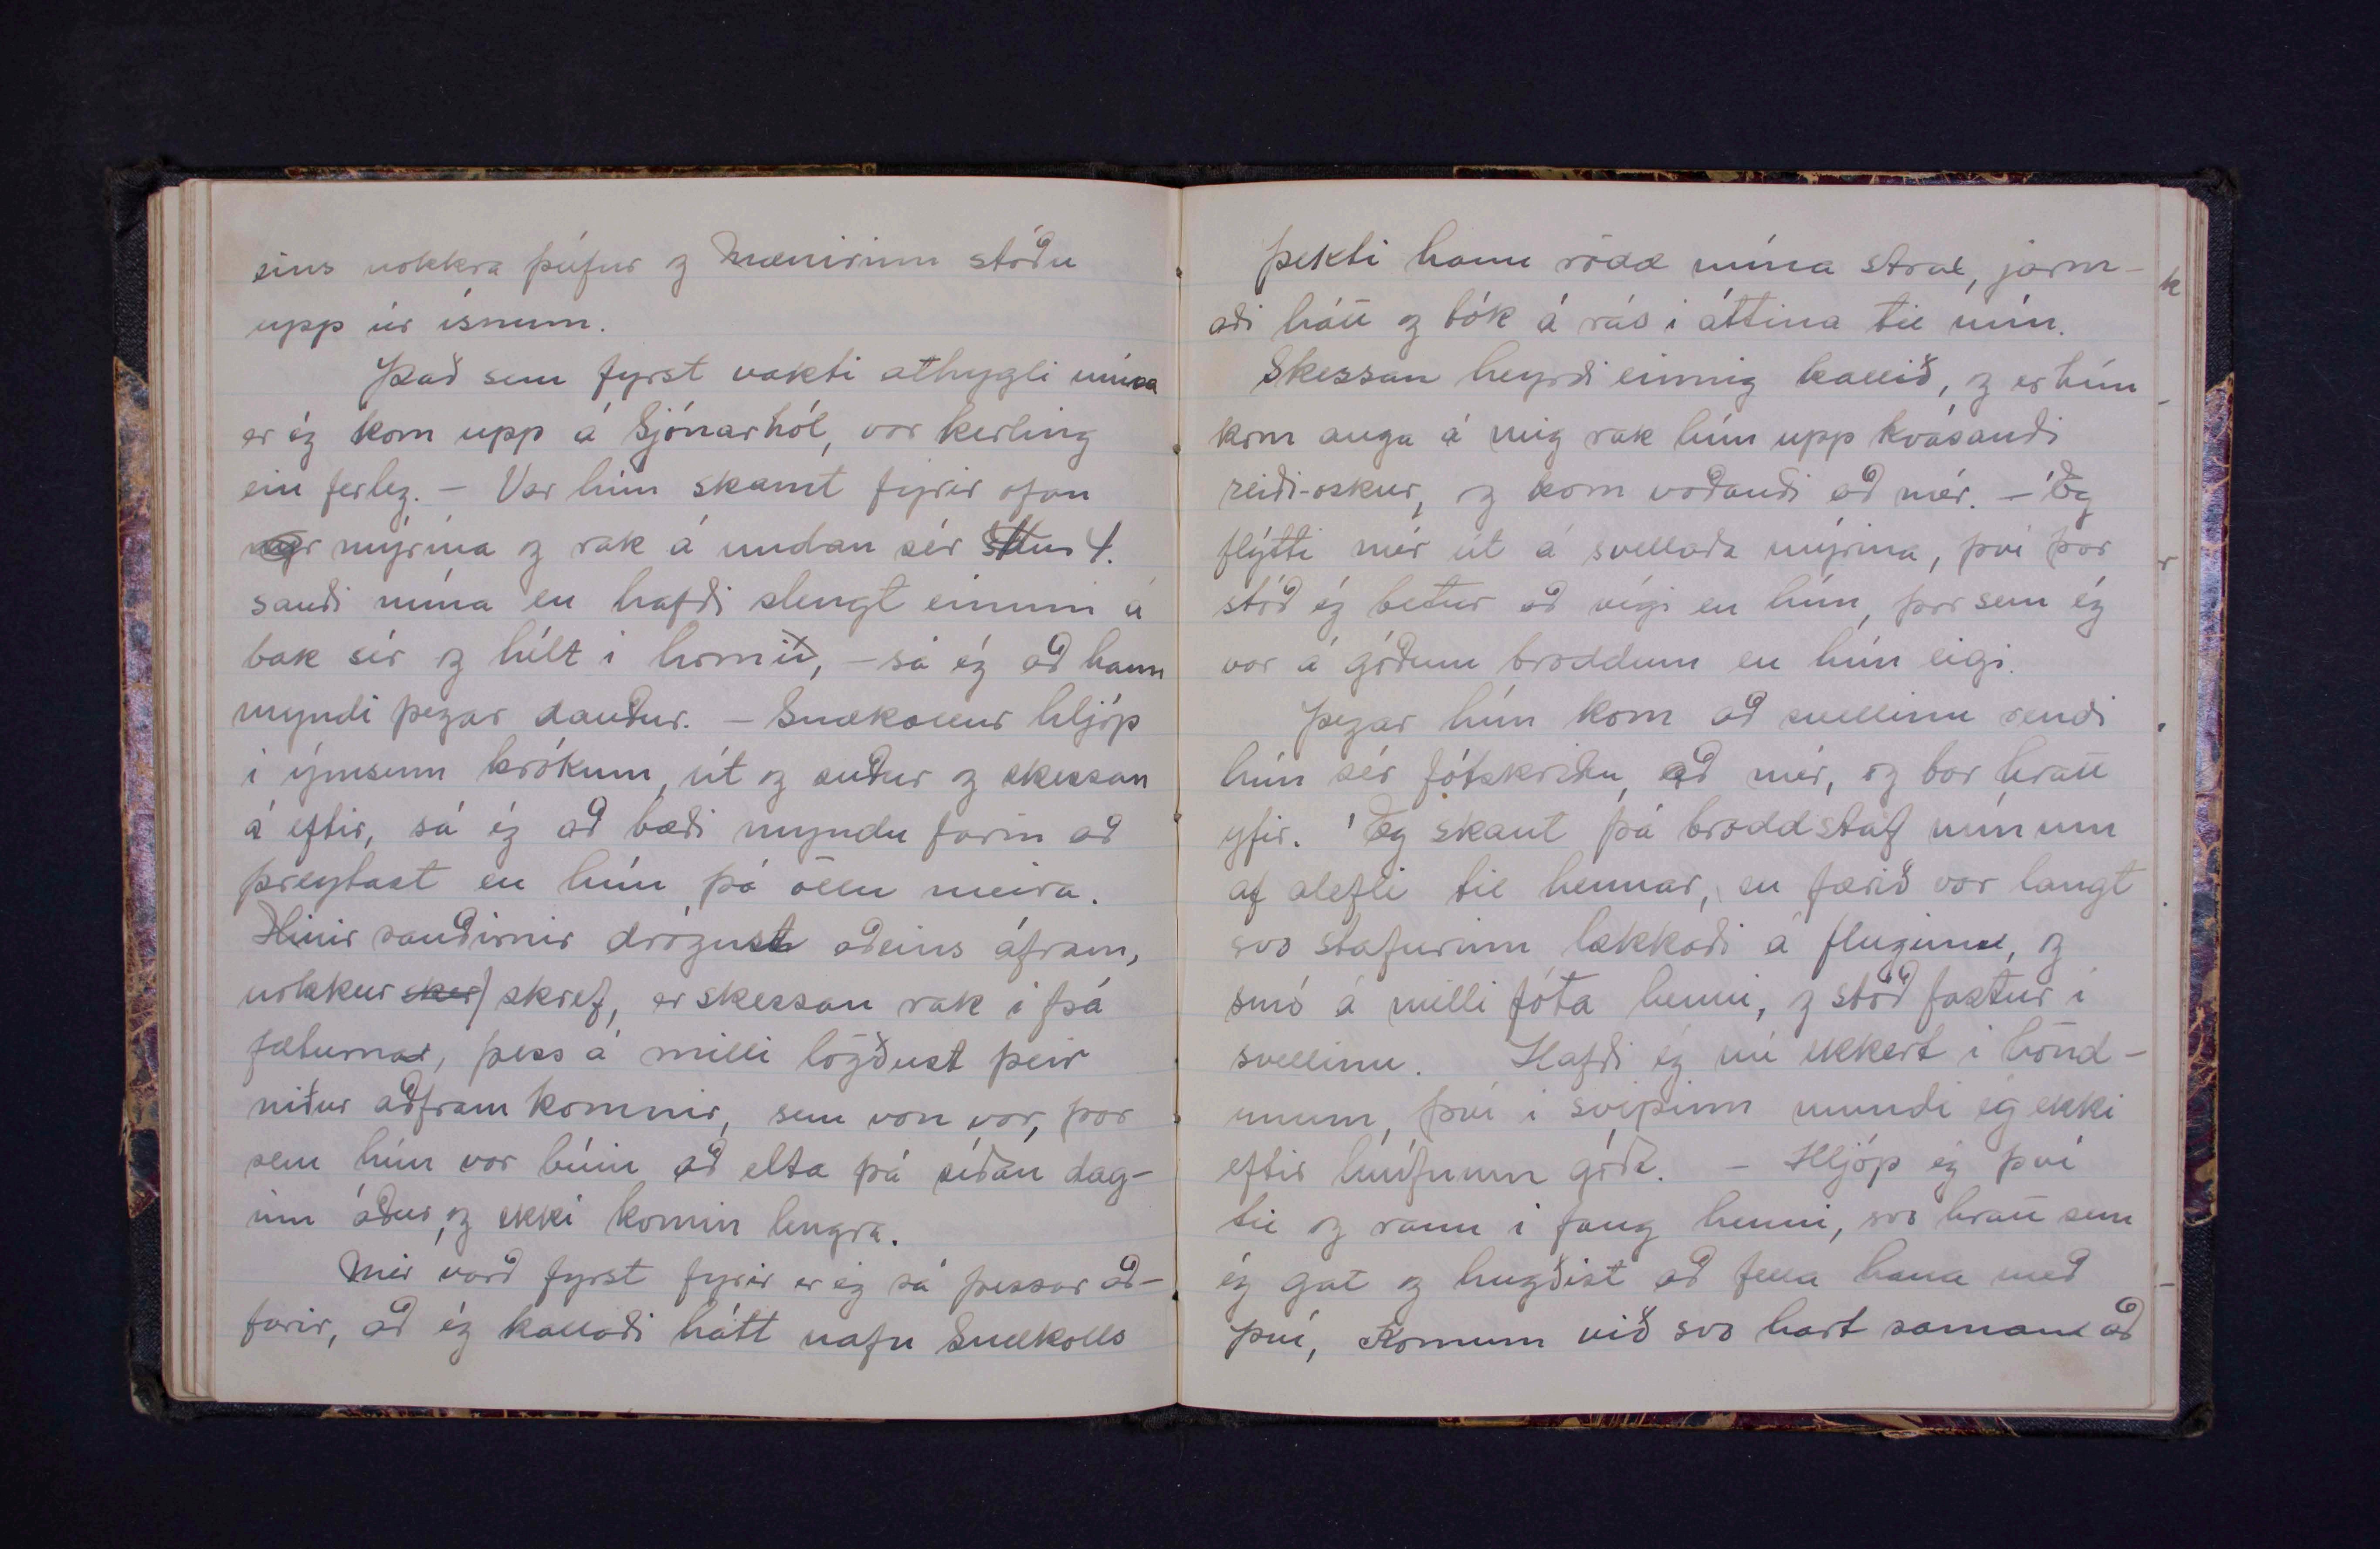 eins nokkra þúfur og Mænirinn stóðu
upp úr ísnum.
Það sem fyrst vakti athygli mína
er ég kom upp á Sjónarhól, var kerling
ein ferleg. – Var hún skamt fyrir ofan
mýrina og rak á undan sér 4.
sauði mína en hafði slengt einum á
bak sér og hélt í hornið, – sá ég að hann
myndi þegar dauður. – Snækollur hljóp
í ýmsum krókum, út og suður og skessan
á eftir, sá ég að bæði myndu farin að
þreytast en hún þó öllu meira.
Hinir sauðirnir drógust aðeins áfram,
nokkur sker skref, er skessan rak í þá
fæturnar, þess á milli lögðust þeir
niður aðfram komnir, sem von var, þar
sem hún var búin að elta þá síðan dag-
inn áður, og ekki komin lengra.
Mér varð fyrst fyrir er ég sá þessar að-
farir, að ég kallaði hátt nafn Snækolls
þekti hann rödd mína strax, jarm-
aði hátt og tók á rás í áttina til mín.
Skessan heyrði einnig kallið, og er hún
kom auga á mig rak hún upp hvásandi
reiði-öskur, og kom vaðandi að mér. – Ég
flýtti mér út á svellaða mýrina, því þar
stóð ég betur að vígi en hún, þar sem ég
var á góðum broddum en hún eigi.
Þegar hún kom að svellinu rendi
hún sér fótskriðu, að mér, og bar hratt
yfir. Ég skaut þá broddstaf mínum
af alefli til hennar, en færið var langt
svo stafurinn lækkaði á fluginu, og
smó á milli fóta henni, og stóð fastur í
svellinu. Hafði ég nú ekkert í hönd-
unum, því í svipinn mundi ég ekki
eftir hnífnum góða. – Hljóp ég því
til og rann í fang henni, svo hratt sem
ég gat og hugðist að fella hana með
því, Komum við svo hart saman að